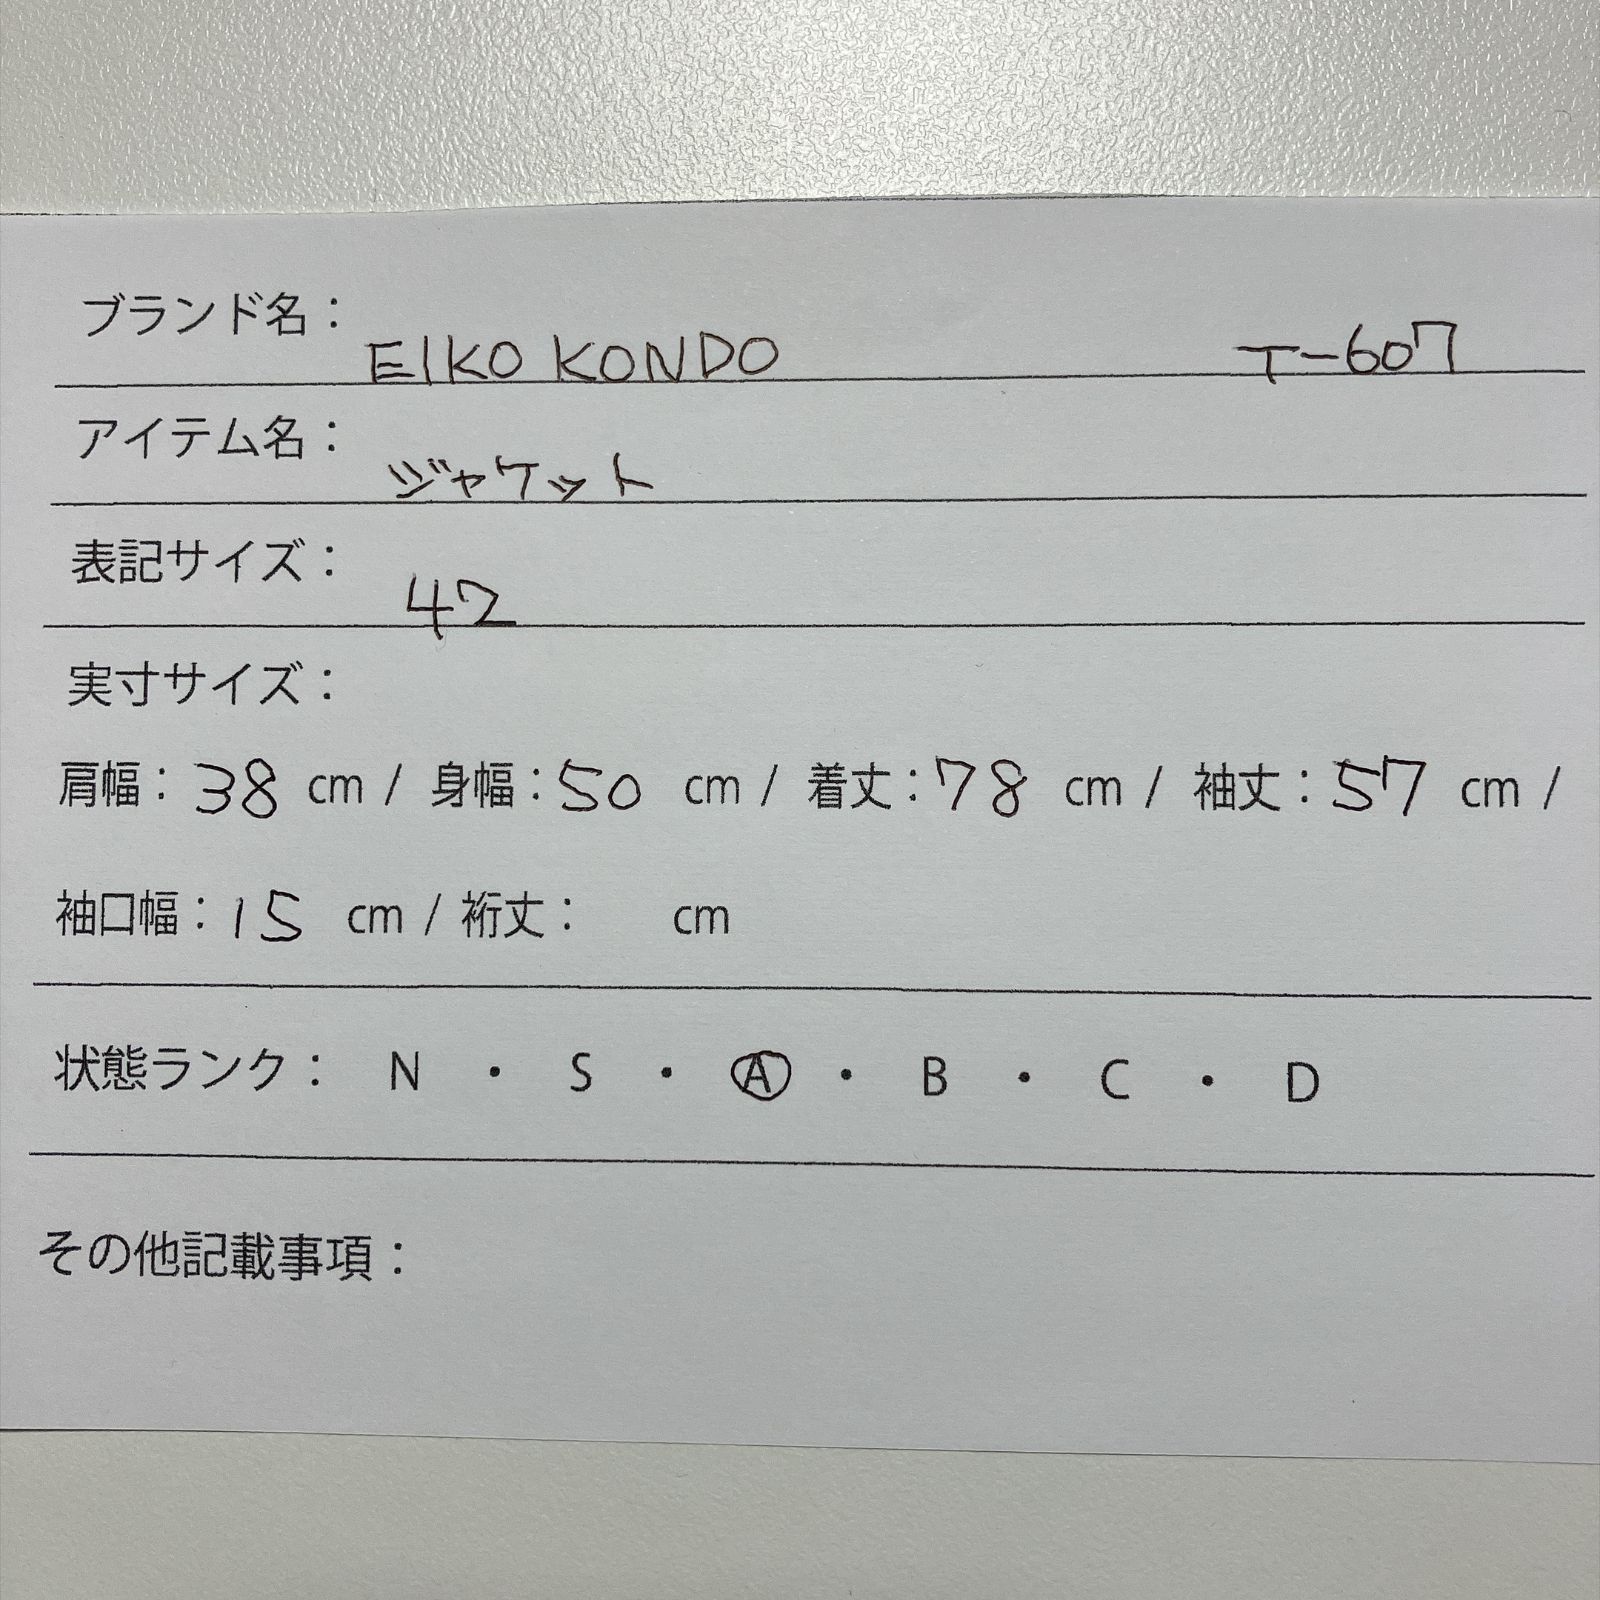 ブランド名： EIKO KONDO T-607
アイテム名： ジャケット
表記サイズ： 42
実寸サイズ：
肩幅：38 cm / 身幅：50 cm / 着丈：78 cm / 袖丈：57 cm /
袖口幅：15 cm / 裄丈： cm
状態ランク： N ・ S ・ A ・ B ・ C ・ D
その他記載事項：